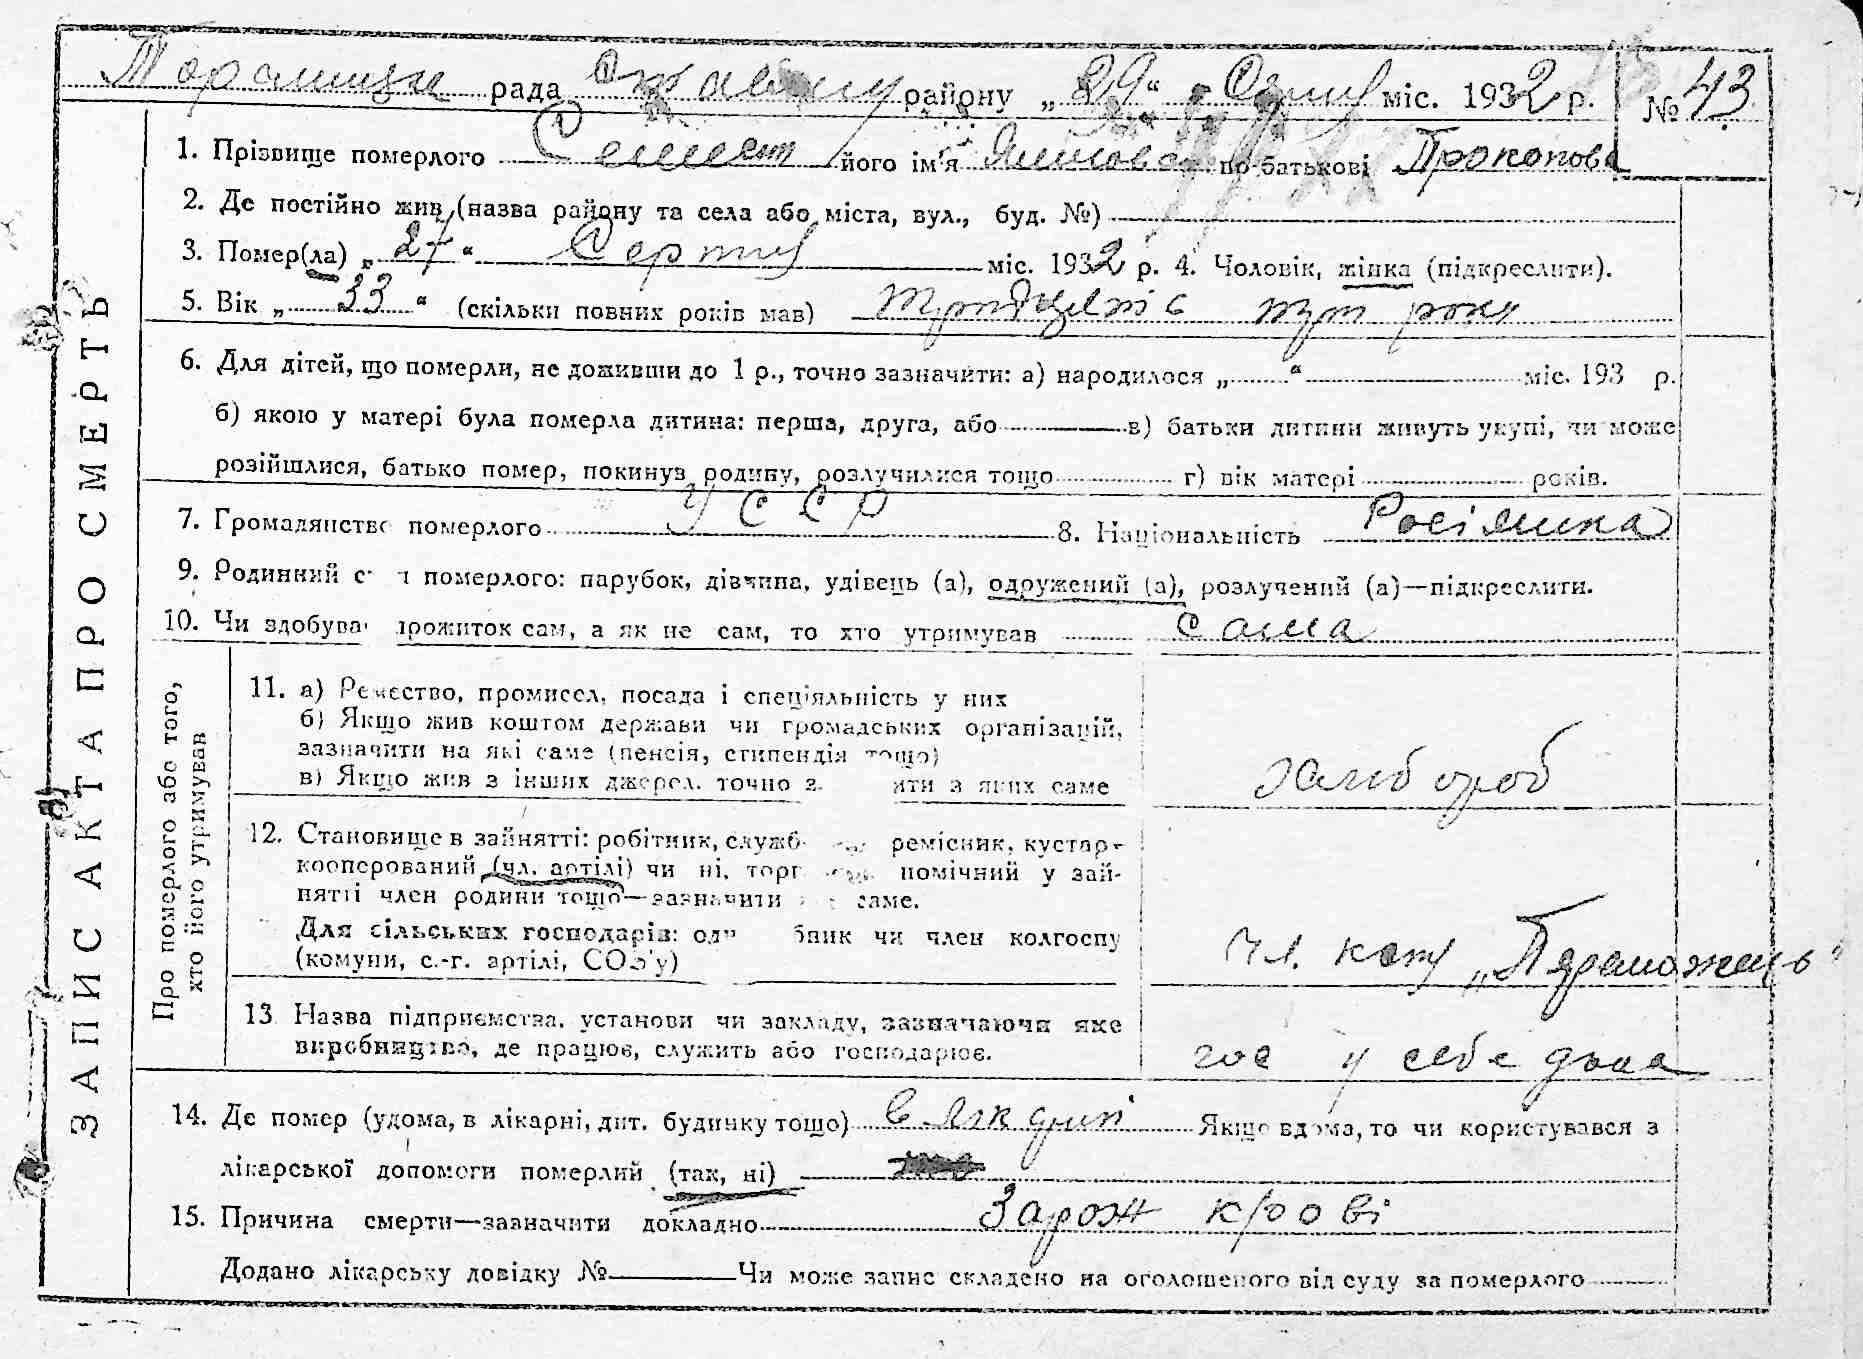 рада району „29“ міс. 1932 р. № 43
1. Прізвище померлого його ім'я по-батькові Прокопова
2. Де постійно жив (назва району та села або міста, вул., буд. №)
3. Помер(ла) „27“ Серпня міс. 1932 р. 4. Чоловік, жінка (підкреслити).
5. Вік „33“ (скільки повних років мав) роки
6. Для дітей, що померли, не доживши до 1 р., точно зазначити: а) народилося „ “ міс. 193 р.
б) якою у матері була померла дитина: перша, друга, або в) батьки дитини живуть укупі, чи може
розійшлися, батько помер, покинув родину, розлучилися тощо г) вік матері років.
7. Громадянство померлого У С С Р 8. Національність Росіянка
9. Родинний с н померлого: парубок, дівчина, удівець (а), одружений (а), розлучений (а)—підкреслити.
10. Чи здобував прожиток сам, а як не сам, то хто утримував Сама
ЗАПИС АКТА ПРО СМЕРТЬ
Про померлого або того,
хто його утримував
11. а) Ремество, промисел, посада і спеціяльність у них
б) Якщо жив коштом держави чи громадських організацій,
зазначити на які саме (пенсія, стипендія тощо)
в) Якщо жив з інших джерел, точно з ити з яких саме
хлібороб
12. Становище в зайнятті: робітник, служб ремісник, кустар-
кооперований (чл. артілі) чи ні, торг помічний у зай-
нятті член родини тощо—зазначити саме.
Для сільських господарів: од бник чи член колгоспу
(комуни, с.-г. артілі, СОЗ'у)
Чл. „Переможець“
13. Назва підприємства, установи чи закладу, зазначаючи яке
виробництво, де працює, служить або господарює.
гос у себе дома
14. Де помер (удома, в лікарні, дит. будинку тощо) в Якщо вдома, то чи користувався з
лікарської допомоги померлий (так, ні)
15. Причина смерти—зазначити докладно Зарож крові
Додано лікарську довідку № Чи може запис складено на оголошеного від суду за померлого